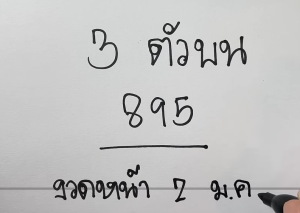 3 ตัวบน
895
งวดหน้า 2 ม.ค